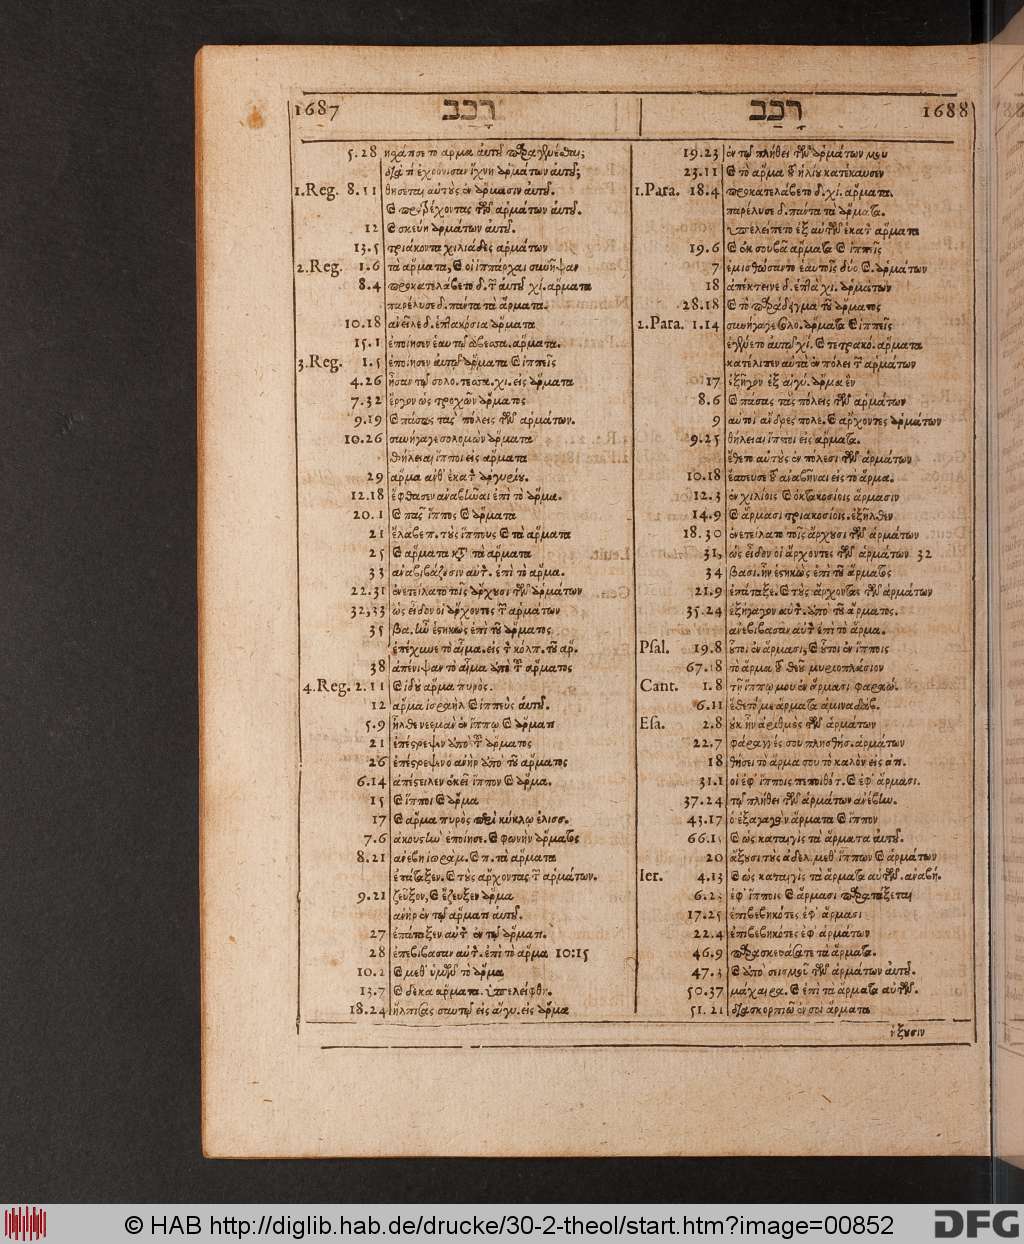 1687 רָכַב
רָכַב 1688
5.28 ἠχάπσε τὸ ἅρμα αὐτοῦ
διὰ τί ἐχρόνισαν ἴχνη ἁρμάτων αὐτοῦ;
1.Reg. 8.11 θήσεται αὐτοὺς ἐν ἅρμασιν αὐτοῦ.
καὶ προτρέχοντας τῶν ἁρμάτων αὐτοῦ.
12 καὶ σκεύη ἁρμάτων αὐτοῦ.
13.5 τριάκοντα χιλιάδες ἁρμάτων
2.Reg. 1.6 τὰ ἅρματα, καὶ οἱ ἱππάρχαι συνῆψαν
8.4 προκατελάβετο δ. τ̃ αὐτοῦ χί. ἅρματα
παρέλυσε δ. πάντα τὰ ἅρματα.
10.18 ἀνεῖλε δ. ἑπτακόσια ἅρματα
15.1 ἐποίησεν ἑαυτῷ ἀβεσσα. ἅρματα.
3.Reg. 1.5 ἐποίησεν αὐτῷ ἅρματα καὶ ἱππεῖς
4.26 ἦσαν τῷ σολο. τεσσ. χι. εἰς ἅρματα
7.32 ἔργον ὡς τροχῶν ἅρματος
9.19 καὶ πάσας τὰς πόλεις τῶν ἁρμάτων.
10.26 συνήγαγε σολομὼν ἅρματα
θήλειαι ἵπποι εἰς ἅρματα
29 ἅρμα ἀνθ' ἑκατ̃ ἀργυρίου.
12.18 ἔφθασεν ἀναβῶαι ἐπὶ τὸ ἅρμα.
20.1 καὶ πᾶς ἵππος καὶ ἅρματα
21 ἔλαβε π. τοὺς ἵππους καὶ τὰ ἅρματα
25 καὶ ἅρματα κτ̃ τὰ ἅρματα
33 ἀναβιβάζουσιν αὐτ̃. ἐπὶ τὸ ἅρμα.
22.31 ἐνετείλατο τοῖς ἄρχουσι τῶν ἁρμάτων
32,33 ὡς εἶδον οἱ ἄρχοντες τ̃ ἁρμάτων
35 βα. ἦν ἑστηκὼς ἐπὶ τοῦ ἅρματος
ἐπέχυνε τὸ αἷμα. εἰς τ̃ κόλπ. τοῦ ἅρ.
38 ἀπένιψαν τὸ αἷμα ἀπὸ τ̃ ἅρματος
4.Reg. 2.11 καὶ ἰδοὺ ἅρμα πυρός.
12 ἅρμα ἰσραὴλ καὶ ἱππεὺς αὐτοῦ.
5.9 ἦλθε νεεμὰν ἐν ἵππῳ καὶ ἅρματι
21 ἐπέστρεψεν ἀπὸ τ̃ ἅρματος
26 ἐπέστρεψεν ὁ ἀνὴρ ἀπὸ τοῦ ἅρματος
6.14 ἀπέστειλεν ἐκεῖ ἵππον καὶ ἅρμα.
15 καὶ ἵπποι καὶ ἅρμα
17 καὶ ἅρμα πυρὸς περὶ κύκλῳ ἐλισς.
7.6 ἀκουστὼ ἐποίησε. καὶ φωνὴν ἅρματος
8.21 ἀνέβη ἰωράμ. καὶ π. τὰ ἅρματα
ἐπάταξεν. καὶ τοὺς ἄρχοντας τ̃ ἁρμάτων.
9.21 ζεῦξον, καὶ ἔζευξεν ἅρμα
ἀνὴρ ἐν τῷ ἅρματι αὐτοῦ.
27 ἐπάταξεν αὐτ̃ ἐν τῷ ἅρματι.
28 ἐπεβίβασαν αὐτ̃. ἐπὶ τὸ ἅρμα 10:15
10.2 καὶ μεθ' ὑμῶν τὸ ἅρμα
13.7 καὶ δέκα ἅρματα. ὑπελείφθη.
18.24 ἤλπισας σαυτῷ εἰς αἴγυ. εἰς ἅρμα
19.23 ἐν τῷ πλήθει τῶν ἁρμάτων μου
23.11 καὶ τὸ ἅρμα τοῦ ἡλίου κατέκαυσεν
1.Para. 18.4 προκατελάβετο δ. χί. ἅρματα.
παρέλυσε δ. πάντα τὰ ἅρματα.
ὑπελείπετο ἐξ αὐτῶν ἑκατ̃ ἅρματα
19.6 καὶ ἐκ σουβὰ ἅρματα καὶ ἱππεῖς
7 ἐμισθώσαντο ἑαυτοῖς δύο καὶ. ἁρμάτων
18 ἀπέκτεινε δ. ἑπτὰ χι. ἁρμάτων
28.18 καὶ τὸ παράδειγμα τοῦ ἅρματος
2.Para. 1.14 συνήγαγε σολο. ἅρματα καὶ ἱππεῖς
ἐγένετο αὐτῷ χί. καὶ τετρακό. ἅρματα
κατέλιπεν αὐτὰ ἐν πόλει τ̃ ἁρμάτων
17 ἐξῆγον ἐξ αἰγύ. ἅρμα ἓν
8.6 καὶ πάσας τὰς πόλεις τῶν ἁρμάτων
9 αὐτοὶ ἄνδρες πολε. καὶ ἄρχοντες ἁρμάτων
9.25 θήλειαι ἵπποι εἰς ἅρματα.
ἔθετο αὐτοὺς ἐν πόλεσι τῶν ἁρμάτων
10.18 ἔσπευσε τοῦ ἀναβῆναι εἰς τὸ ἅρμα.
12.3 ἐν χιλίοις καὶ διακοσίοις ἅρμασιν
14.9 καὶ ἅρμασι τριακοσίοις. ἐξῆλθεν
18.30 ἐνετείλατο τοῖς ἄρχουσι τῶν ἁρμάτων
31, ὡς εἶδον οἱ ἄρχοντες τῶν ἁρμάτων 32
34 βασι. ἦν ἑστηκὼς ἐπὶ τοῦ ἅρματος
21.9 ἐπάταξε. καὶ τοὺς ἄρχοντας τῶν ἁρμάτων
35.24 ἐξήγαγον αὐτ̃. ἀπὸ τοῦ ἅρματος.
ἀνεβίβασαν αὐτ̃ ἐπὶ τὸ ἅρμα.
Psal. 19.8 οὗτοι ἐν ἅρμασι, καὶ οὗτοι ἐν ἵπποις
67.18 τὸ ἅρμα τοῦ θεοῦ μυριοπλάσιον
Cant. 1.8 τῇ ἵππῳ μου ἐν ἅρμασι φαραώ.
6.11 ἔθετό με ἅρματα ἀμιναδάβ.
Esa. 2.8 οὐκ ἦν ἀριθμὸς τῶν ἁρμάτων
22.7 φάραγγές σου πλησθήσ. ἁρμάτων
18 θήσει τὸ ἅρμα σου τὸ καλὸν εἰς ἀτ.
31.1 οἱ ἐφ' ἵπποις πεποιθότ. καὶ ἐφ' ἅρμασι.
37.24 τῷ πλήθει τῶν ἁρμάτων ἀνέβην.
43.17 ὁ ἐξαγαγὼν ἅρματα καὶ ἵππον
66.15 καὶ ὡς καταιγὶς τὰ ἅρματα αὐτοῦ.
20 ἄξουσι τοὺς ἀδελ. μεθ' ἵππων καὶ ἁρμάτων
Ier. 4.13 καὶ ὡς καταιγὶς τὰ ἅρματα αὐτῶν. ἀναβή.
6.23 ἐφ' ἵπποις καὶ ἅρμασι παρατάξεται
17.25 ἐπιβεβηκότες ἐφ' ἅρμασι
22.4 ἐπιβεβηκότες ἐφ' ἁρμάτων
46.9 παρασκευάσατε τὰ ἅρματα.
47.3 καὶ ἀπὸ σεισμοῦ τῶν ἁρμάτων αὐτοῦ.
50.37 μάχαιρα. καὶ ἐπὶ τὰ ἅρματα αὐτῶν.
51.21 διασκορπιῶ ἐν σοὶ ἅρματα
ἥξουσιν
© HAB http://diglib.hab.de/drucke/30-2-theol/start.htm?image=00852 DFG